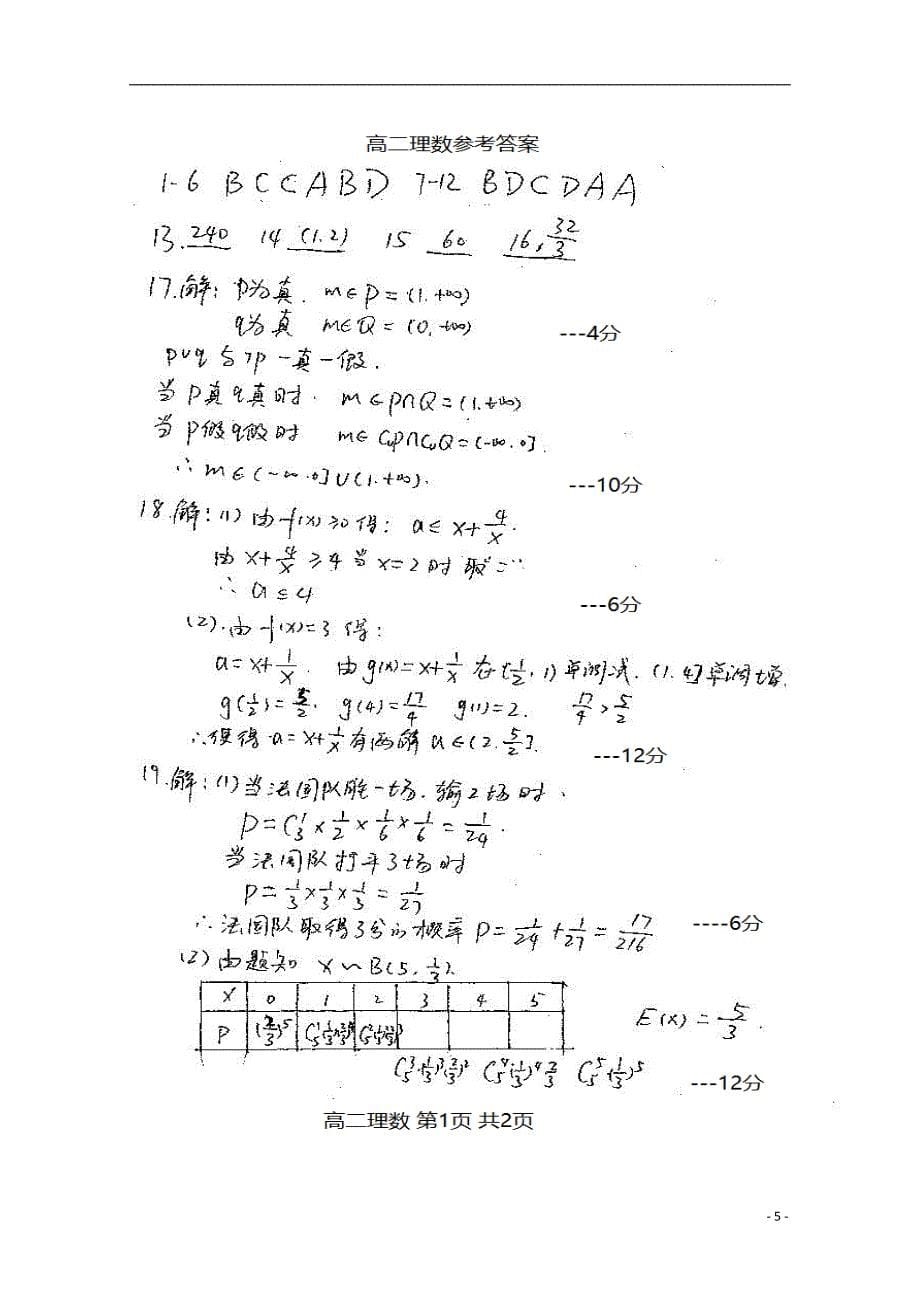 高二理数参考答案
1-6 B C C A B D 7-12 B D C D A A
13. 240 14 (1.2) 15 60 16. 32/3
17.解: p为真. m∈P=(1.+∞)
q为真 m∈Q=(0.+∞) ---4分
p∪q 与 ┐p 一真一假.
当p真q真时. m∈P∩Q=(1.+∞)
当p假q假时 m∈CuP∩CuQ=(-∞.0].
∴m∈(-∞.0]∪(1.+∞). ---10分
18.解:(1) 由f(x)≥0得: a≤x+4/x.
由x+4/x≥4 当x=2时取"="
∴a≤4 ---6分
(2).由f(x)=3得:
a=x+1/x. 由g(x)=x+1/x在[1/2,1)单调减.(1.4]单调增.
g(1/2)=5/2. g(4)=17/4 g(1)=2. 17/4>5/2
∴使得a=x+1/x有两解 a∈(2.5/2]. ---12分
19.解:(1)当法国队胜一场.输2场时.
P=C₃¹×1/2×1/6×1/6=1/24.
当法国队打平3场时
P=1/3×1/3×1/3=1/27
∴法国队取得3分的概率P=1/24+1/27=17/216 ----6分
(2)由题知 X~B(5,1/3).
X 0 1 2 3 4 5
P (2/3)⁵ E(X)=5/3.
C₅³(1/3)³(2/3)² C₅⁴(1/3)⁴2/3 C₅⁵(1/3)⁵
---12分
高二理数 第1页 共2页
- 5 -